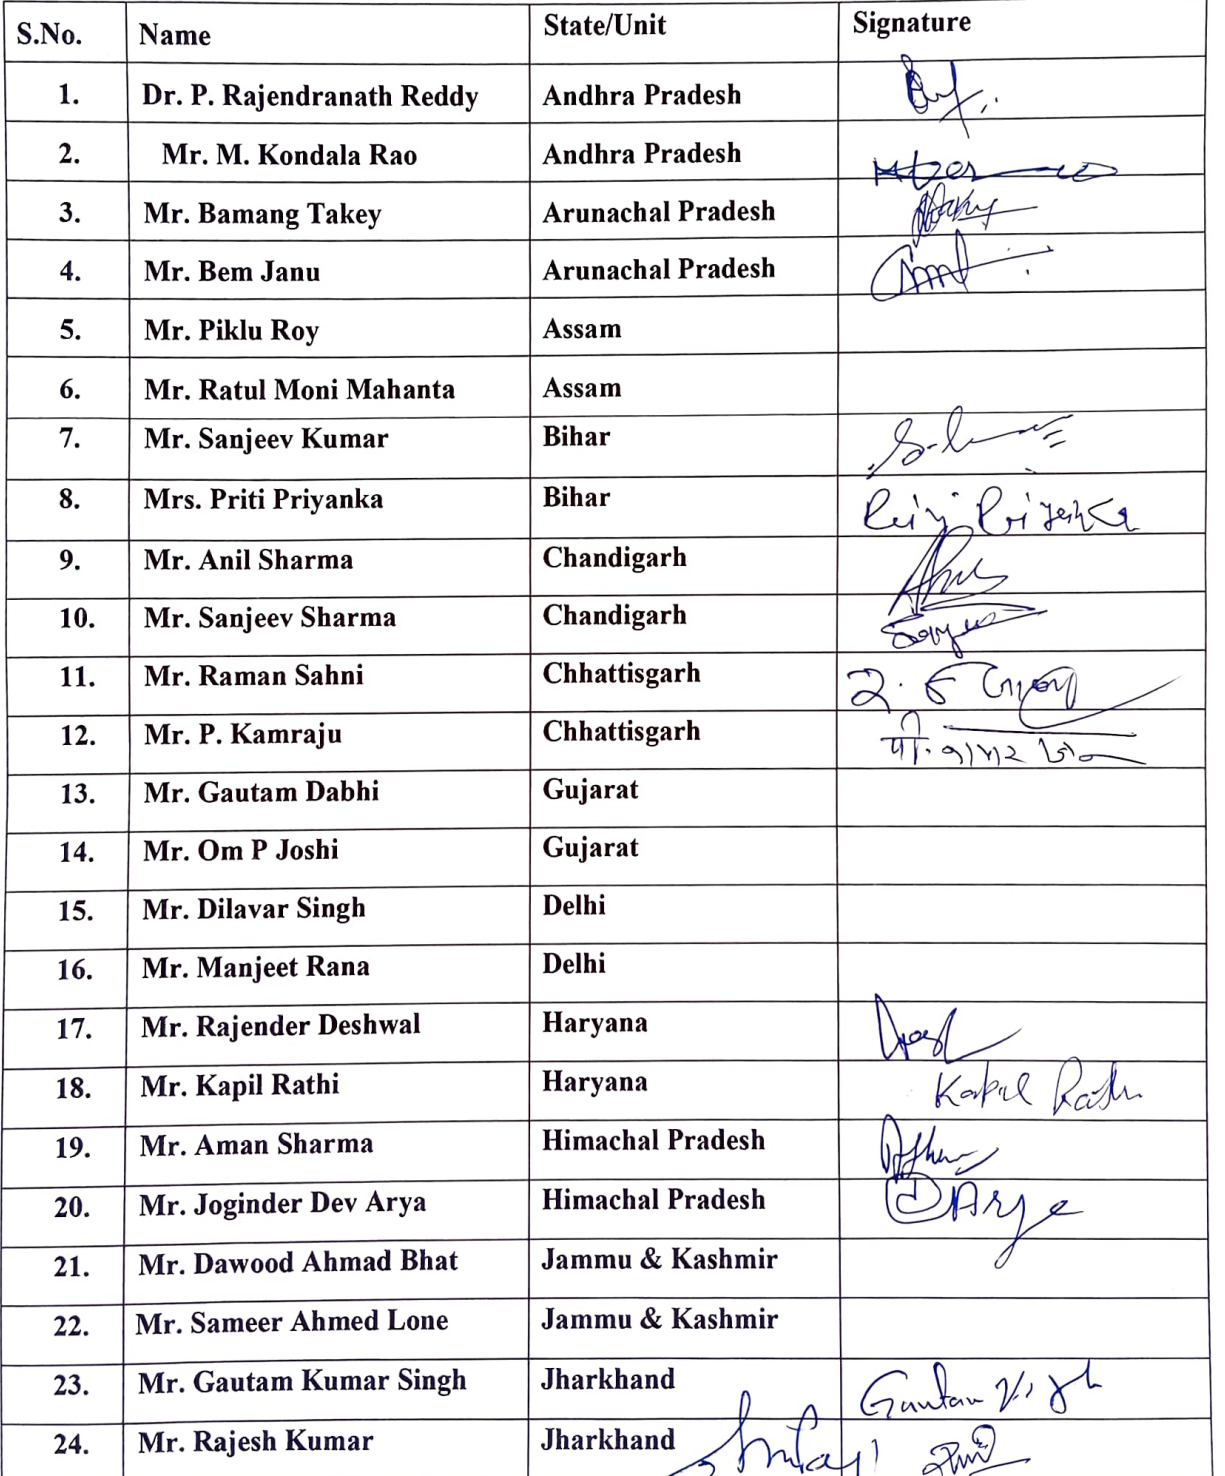 S.No. Name State/Unit Signature
1. Dr. P. Rajendranath Reddy Andhra Pradesh
2. Mr. M. Kondala Rao Andhra Pradesh
3. Mr. Bamang Takey Arunachal Pradesh
4. Mr. Bem Janu Arunachal Pradesh
5. Mr. Piklu Roy Assam
6. Mr. Ratul Moni Mahanta Assam
7. Mr. Sanjeev Kumar Bihar
8. Mrs. Priti Priyanka Bihar
9. Mr. Anil Sharma Chandigarh
10. Mr. Sanjeev Sharma Chandigarh
11. Mr. Raman Sahni Chhattisgarh
12. Mr. P. Kamraju Chhattisgarh
13. Mr. Gautam Dabhi Gujarat
14. Mr. Om P Joshi Gujarat
15. Mr. Dilavar Singh Delhi
16. Mr. Manjeet Rana Delhi
17. Mr. Rajender Deshwal Haryana
18. Mr. Kapil Rathi Haryana Kapil Rathi
19. Mr. Aman Sharma Himachal Pradesh
20. Mr. Joginder Dev Arya Himachal Pradesh Arya
21. Mr. Dawood Ahmad Bhat Jammu & Kashmir
22. Mr. Sameer Ahmed Lone Jammu & Kashmir
23. Mr. Gautam Kumar Singh Jharkhand Gautam
24. Mr. Rajesh Kumar Jharkhand